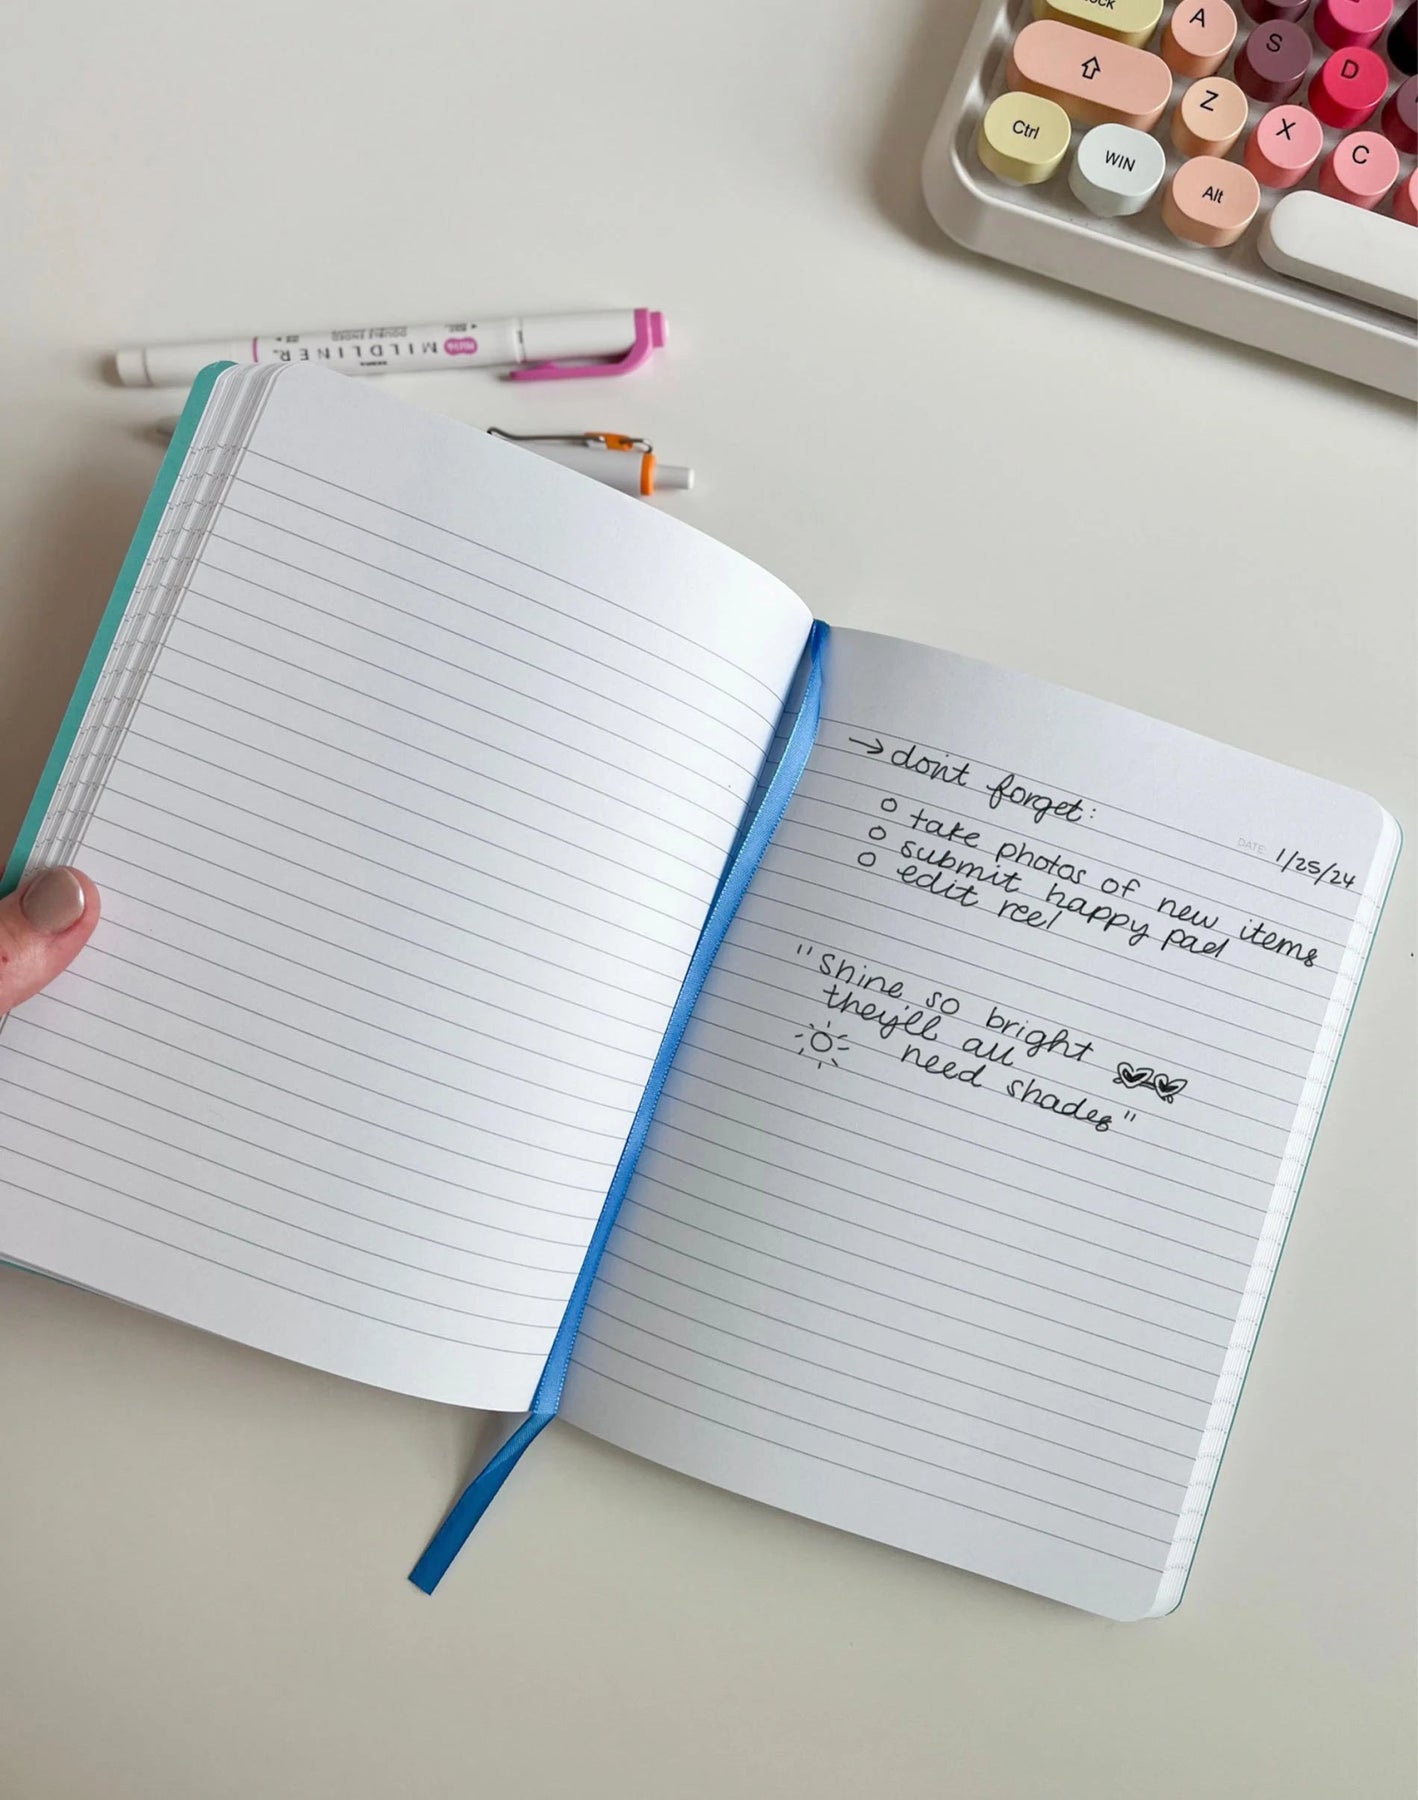 ock
A
S
D
Z
X
C
Ctrl
WIN
Alt
MILDLINER
DOUBLE ENDED
ZEBRA
→ don't forget:
DATE: 1/25/24
o take photos of new items
o submit happy pad
o edit reel
"Shine so bright
they'll all
need shades"